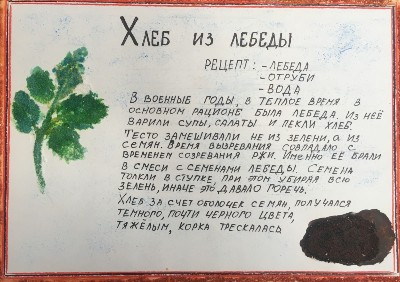 Хлеб из лебеды
Рецепт: -лебеда
-отруби
-вода
В военные годы, в теплое время в
основном рационе была лебеда. Из неё
варили супы, салаты и пекли хлеб.
Тесто замешивали не из зелени, а из
семян. Время вызревания совпадало с
временем созревания ржи. Именно её брали
в смеси с семенами лебеды. Семена
толкли в ступке, при этом убирая всю
зелень, иначе это давало горечь.
Хлеб за счет оболочек семян, получался
темного, почти черного цвета,
тяжёлым, корка трескалась